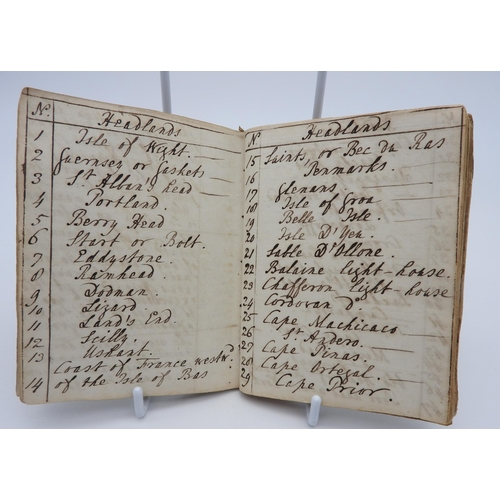 No. Headlands
1 Isle of Wight
2 Guernsey or Gaskets
3 St Alban's head
4 Portland.
5 Berry Head
6 Start or Bolt.
7 Eddystone.
8 Ramhead
9 Dodman.
10 Lizard
11 Land's End.
12 Scilly.
13 Ushant.
14 Coast of France westwd.
of the Isle of Bas
N Headlands
15 Saints, or Bec du Ras
16 Penmarks.
17 Glenans.
18 Isle of Groa
19 Belle Isle.
20 Isle D'Yeu.
21 Sable D'Ollone.
22 Balaine light-house.
23 Chafferon light-house
24 Cordovan Do
25 Cape Machicaco
26 St Andero.
27 Cape Pinas.
28 Cape Ortegal.
29 Cape Prior.